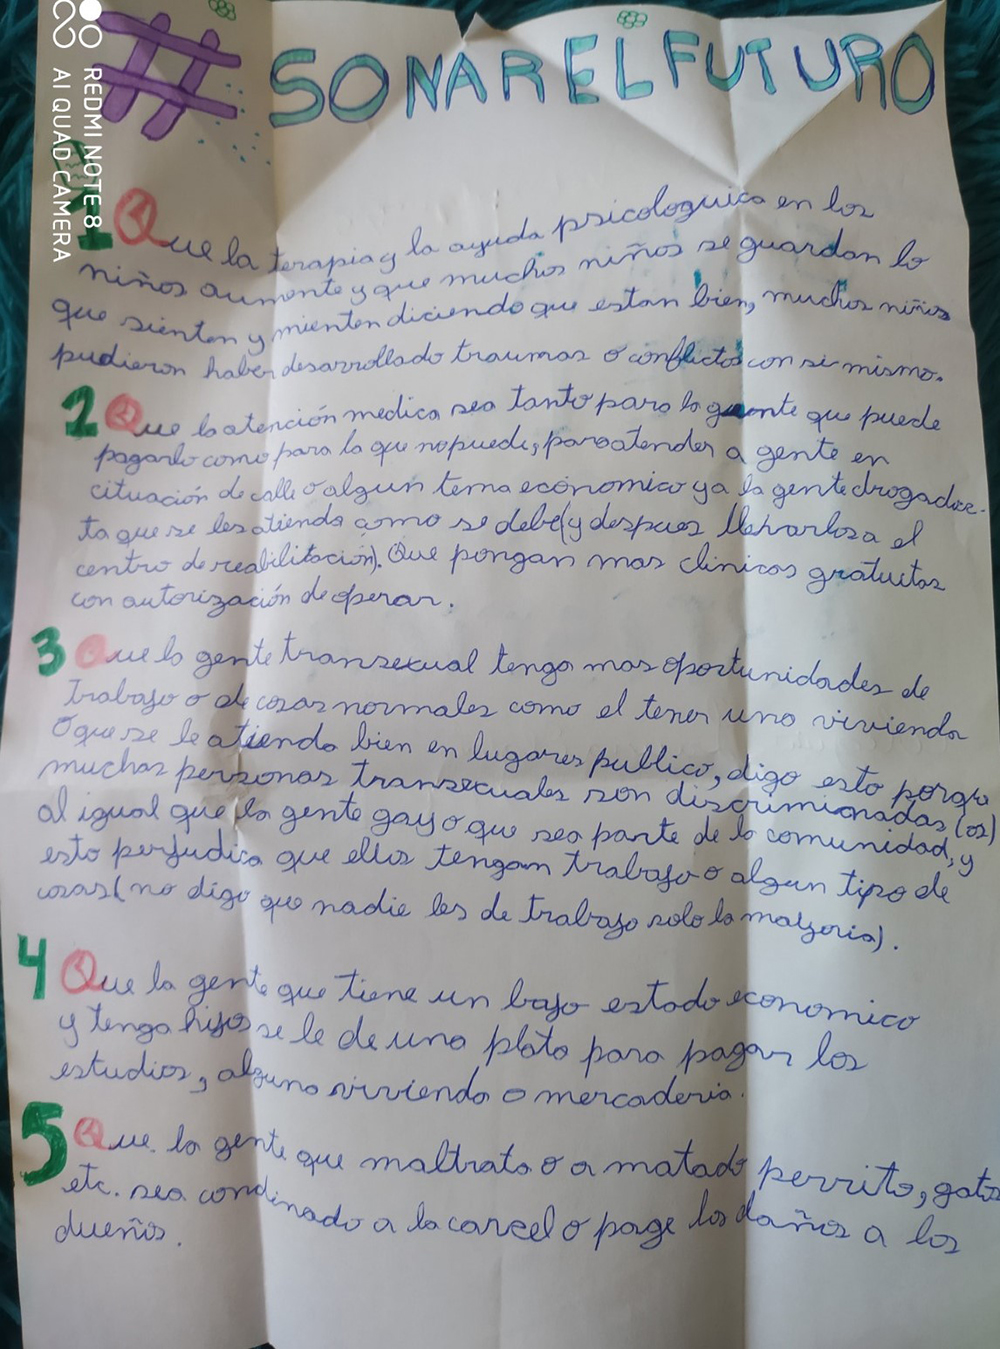 #SONAR EL FUTURO
1 Que la terapia y la ayuda psicologuica en los
niños aumente y que muchos niños se guardan lo
que sienten y mienten diciendo que estan bien, muchos niños
pudieron haber desarrollado traumas o conflictos con si mismo.
2 Que la atención medica sea tanto para la gente que puede
pagarlo como para la que no puede, para atender a gente en
cituación de calle o algun tema economico y a la gente drogadic-
ta que se les atienda como se debe (y despues llevarlos a el
centro de reabilitación). Que pongan mas clinicas gratuitas
con autorización de operar.
3 Que la gente transexual tenga mas oportunidades de
trabajo o de cosas normales como el tener una vivienda
o que se le atienda bien en lugares publico, digo esto porque
muchas personas transexuales son discriminadas (os)
al igual que la gente gay o que sea parte de la comunidad, y
esto perjudica que ellos tengam trabajo o algun tipo de
cosas (no digo que nadie les de trabajo solo la mayoria).
4 Que la gente que tiene un bajo estado economico
y tenga hijos se le de una plata para pagar los
estudios, alguna vivienda o mercaderia.
5 Que la gente que maltrata o a matado perrito, gatos
etc. sea condinado a la carcel o page los daños a los
dueños.
REDMI NOTE 8
AI QUAD CAMERA